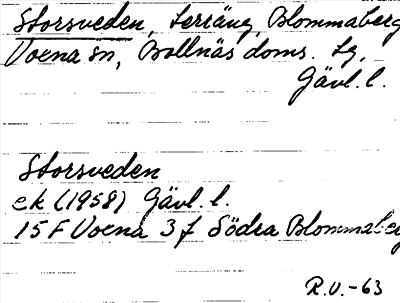 Storsveden, terräng, Blommaberg
Voxna sn, Bollnäs doms. tg,
Gävl. l.
Storsveden
ek (1958) Gävl. l.
15 F Voxna 3 f Södra Blommaberg
R.V. -63